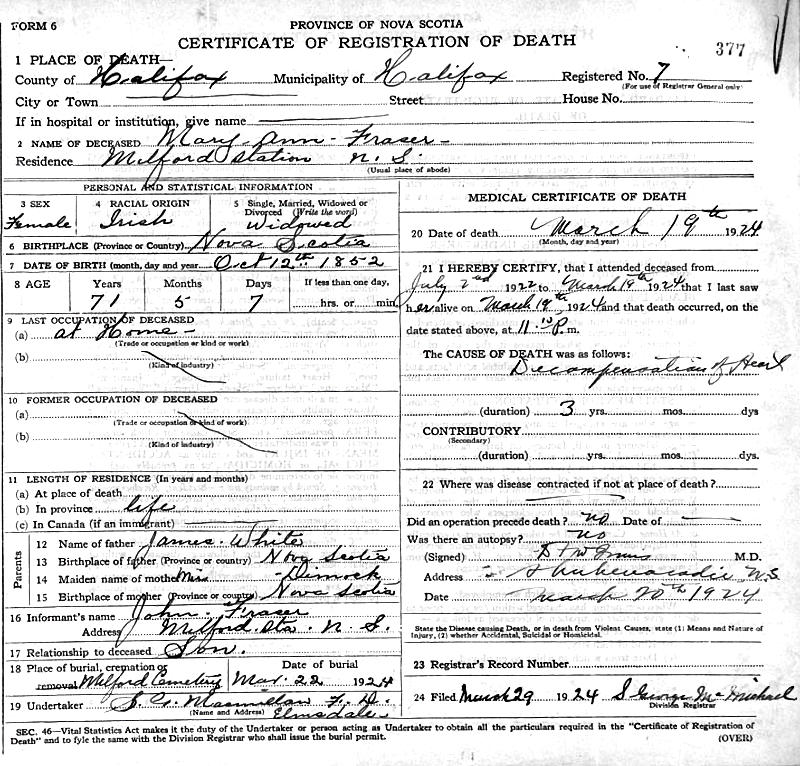 FORM 6
PROVINCE OF NOVA SCOTIA
CERTIFICATE OF REGISTRATION OF DEATH
377
1 PLACE OF DEATH—
County of Halifax Municipality of Halifax Registered No. 7
(For use of Registrar General only)
City or Town Street House No.
If in hospital or institution, give name
2 NAME OF DECEASED Mary Ann Fraser
Residence Milford Station N. S.
(Usual place of abode)
PERSONAL AND STATISTICAL INFORMATION
3 SEX 4 RACIAL ORIGIN 5 Single, Married, Widowed or Divorced (Write the word)
Female Irish Widowed
6 BIRTHPLACE (Province or Country) Nova Scotia
7 DATE OF BIRTH (month, day and year) Oct 12th 1852
8 AGE Years Months Days If less than one day,
71 5 7 hrs. or min.
9 LAST OCCUPATION OF DECEASED
(a) at Home
(Trade or occupation or kind or work)
(b)
(Kind of industry)
10 FORMER OCCUPATION OF DECEASED
(a)
(Trade or occupation or kind of work)
(b)
(Kind of industry)
11 LENGTH OF RESIDENCE (In years and months)
(a) At place of death
(b) In province life
(c) In Canada (if an immigrant)
Parents
12 Name of father James White
13 Birthplace of father (Province or country) Nova Scotia
14 Maiden name of mother Miss Dimock
15 Birthplace of mother (Province or country) Nova Scotia
16 Informant's name John Fraser
Address Milford Sta. N. S.
17 Relationship to deceased Son.
18 Place of burial, cremation or removal Milford Cemetery Date of burial Mar. 22 1924
19 Undertaker Macmillan F. D.
(Name and Address) Elmsdale
MEDICAL CERTIFICATE OF DEATH
20 Date of death March 19th 1924
(Month, day and year)
21 I HEREBY CERTIFY, that I attended deceased from
July 2nd 1922 to March 19th 1924 that I last saw
her alive on March 19th 1924 and that death occurred, on
date stated above, at 11.10 P. m.
The CAUSE OF DEATH was as follows:
Decompensation of Heart
(duration) 3 yrs. mos. dys
CONTRIBUTORY
(Secondary)
(duration) yrs. mos. dys.
22 Where was disease contracted if not at place of death?
Did an operation precede death? no Date of
Was there an autopsy? no
(Signed) M.D.
Address Shubenacadie N.S.
Date March 20th 1924
State the Disease causing Death, or in death from Violent Causes, state (1) Means and Nature of
Injury, (2) whether Accidental, Suicidal or Homicidal.
23 Registrar's Record Number
24 Filed March 29 1924 S George McMichael
Division Registrar
SEC. 46—Vital Statistics Act makes it the duty of the Undertaker or person acting as Undertaker to obtain all the particulars required in the "Certificate of Registration of
Death" and to fyle the same with the Division Registrar who shall issue the burial permit.
(OVER)